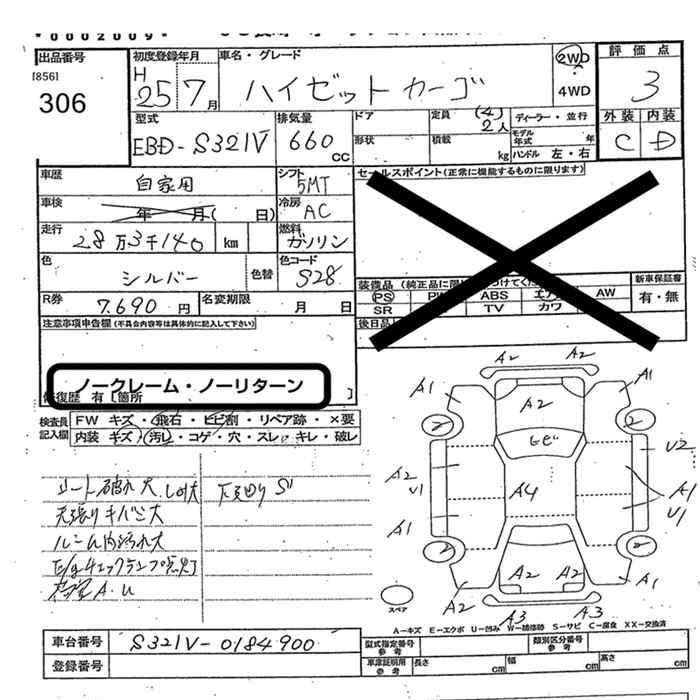 0002009
出品番号 初度登録年月 車名・グレード 2WD 評価点
[856] H
306 25 7月 ハイゼットカーゴ 4WD 3
外装 内装
型式 排気量 ドア 定員 (4) 2人 ディーラー・並行 C D
EBD-S321V 660 CC 形状 積載 kg モデル年式 年
ハンドル 左・右
車歴 自家用 シフト 5MT セールスポイント(正常に機能するものに限ります)
車検 年 月( 日) 冷房 AC
走行 28万3千140 km 燃料 ガソリン
色 シルバー 色替 色コード S28 装備品(純正品に限 つけてく 新車保証書
PS ABS AW 有・無
R券 7,690円 名変期限 月 日 SR TV カワ
注意事項申告欄(不具合内容等は具体的に記入して下さい) 後日品
ノークレーム・ノーリターン
修復歴 有 [箇所 ]
検査員記入欄 FW キズ・飛石・ヒビ割・リペア跡・×要
内装 キズ・汚レ・コゲ・穴・スレ・キレ・破レ
シート破れ大 下廻りS
天張りキバミ大
ルーム内汚れ大
E/gチェックランプ点灯
A.U
A2 A2
A1 A1
A2
2 2
ヒビ U2
A2 U1 A4 A1 U1
A1
2 2
A2 A2
A2 A1
スペア A3 A3
A-キズ E-エクボ U-凹み W-補修跡 S-サビ C-腐食 XX-交換済
車台番号 S321V-0184900 型式指定番号 参考 類別区分番号 参考
登録番号 車庫証明用 参考 長さ cm 幅 cm 高さ cm